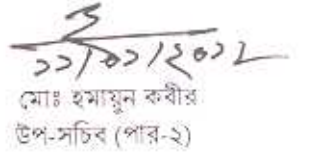 ২২/০২/২০২২
মোঃ হুমায়ুন কবীর
উপ-সচিব (পার-২)